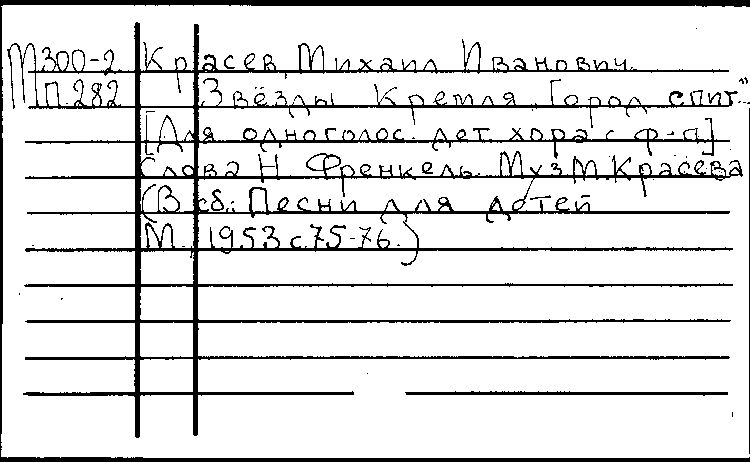 М300-2 Красев, Михаил Иванович.
П.282 Звёзды Кремля „Город спит..."
[Для одноголос. дет. хора с ф-п]
Слова Н. Френкель. Муз. М. Красева
(В сб.: Песни для детей
М., 1953 с.75-76.)